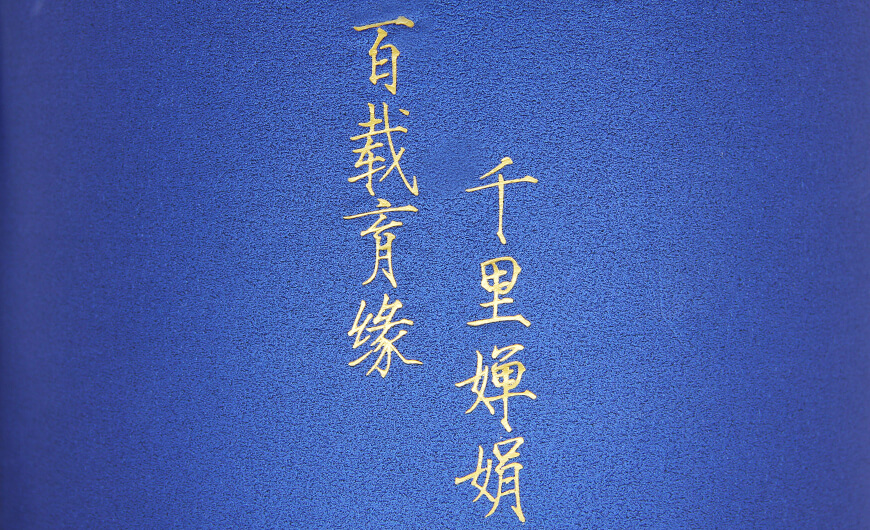 千里婵娟
百载育缘